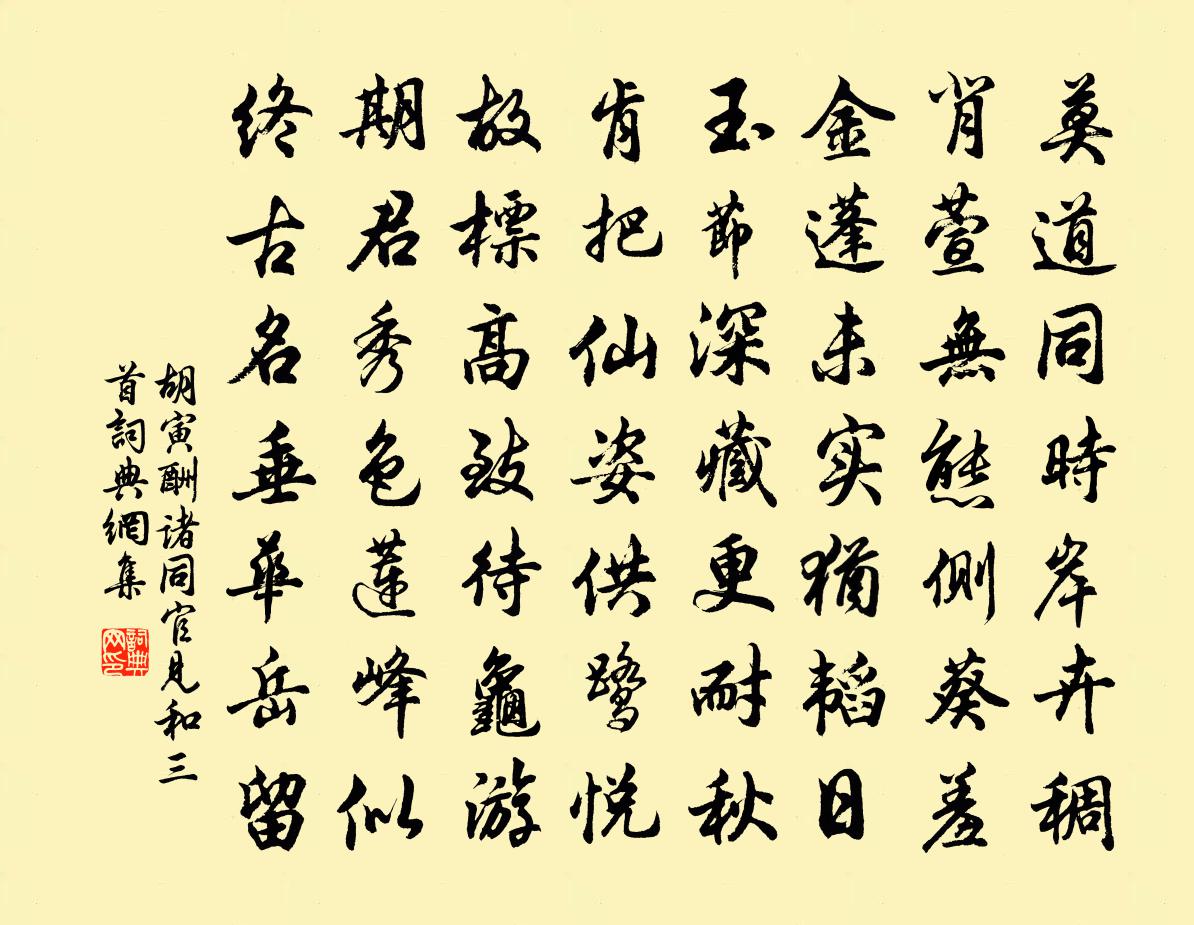 莫道同時岸卉稠
肖萱無態側葵羞
金蓬未实猶韬日
玉節深藏更耐秋
肯把仙姿供鹭悦
故標高致待龜游
期君秀色蓮峰似
終古名垂華岳留
胡寅酬诸同官見和三
首詞典網集
詞典
网印